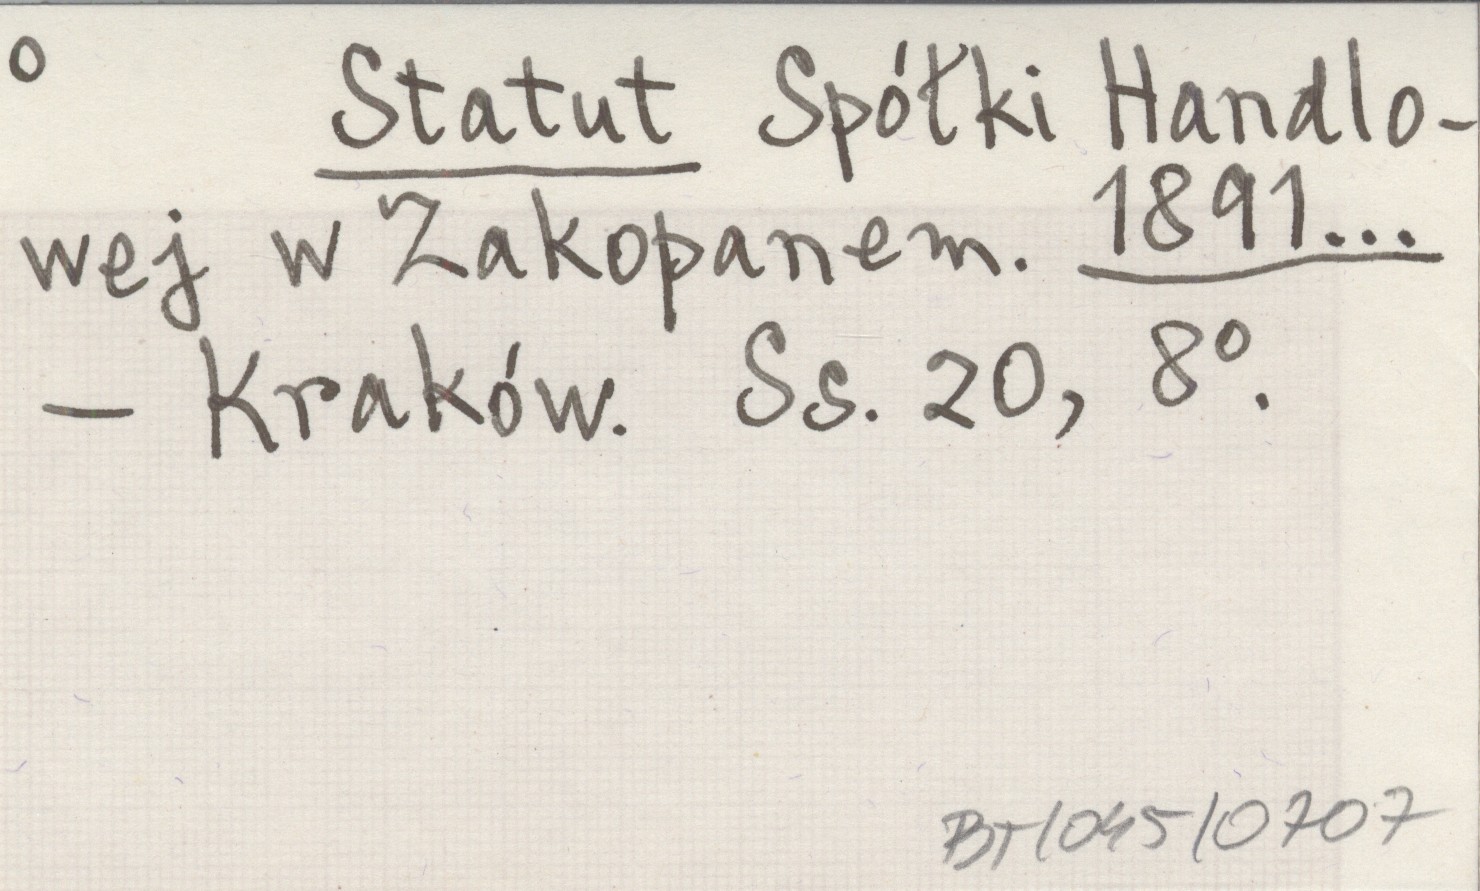 o Statut Spółki Handlo-
wej w Zakopanem. 1891...
— Kraków. Ss. 20, 8°.
BT/045/0707